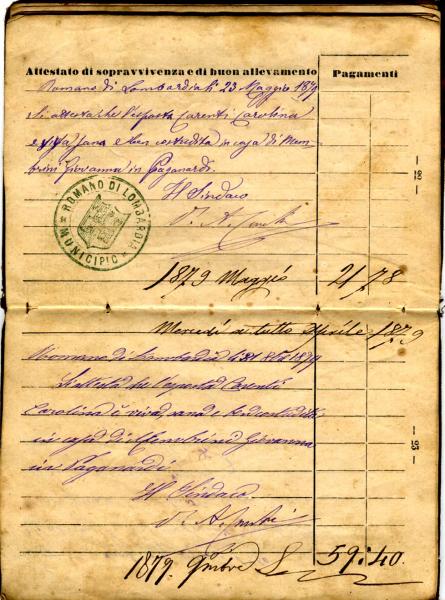 Attestato di sopravvivenza e di buon allevamento
Pagamenti
Romano di Lombardia li 23 Maggio 1879
Si attesta che l'esposta Carenti Carolina
è viva sana e ben custodita in casa di Mem-
brini Giovanna in Paganardi.
Il Sindaco
— 22 —
ROMANO DI LOMBARDIA
MUNICIPIO
1879 Maggio 21 78
Mercedi a tutto Aprile 1879
Romano di Lombardia li 31 1879
Si attesta che l'esposta Carenti
Carolina è viva sana e ben custodita
in casa di Membrini Giovanna
in Paganardi
Il Sindaco
— 23 —
1879 9mbre L 59:40